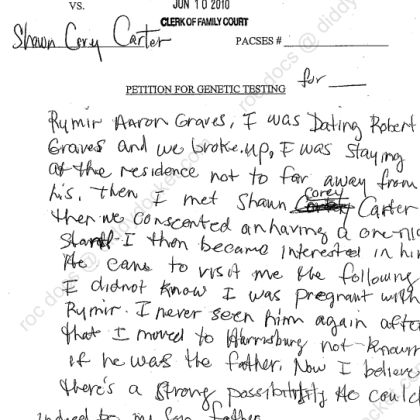 VS.
JUN 10 2010
CLERK OF FAMILY COURT
Shawn Cory Carter
PACSES #
for
PETITION FOR GENETIC TESTING
Rymir Aaron Graves, I was Dating Robert
Graves and we broke.up, I was staying
at the residence not to far away from
his, then I met Shawn Corey Carter
then we consented on having a one-ni
I then became interested in hi
He came to visit me the following
I didnot know I was pregnant with
Rymir. I never seen him again afte
that I moved to Harrisburg not knowin
if he was the father. Now I believe
there's a strong possibility He could
indeed be my Son father
roc docs @ diddydocker.com